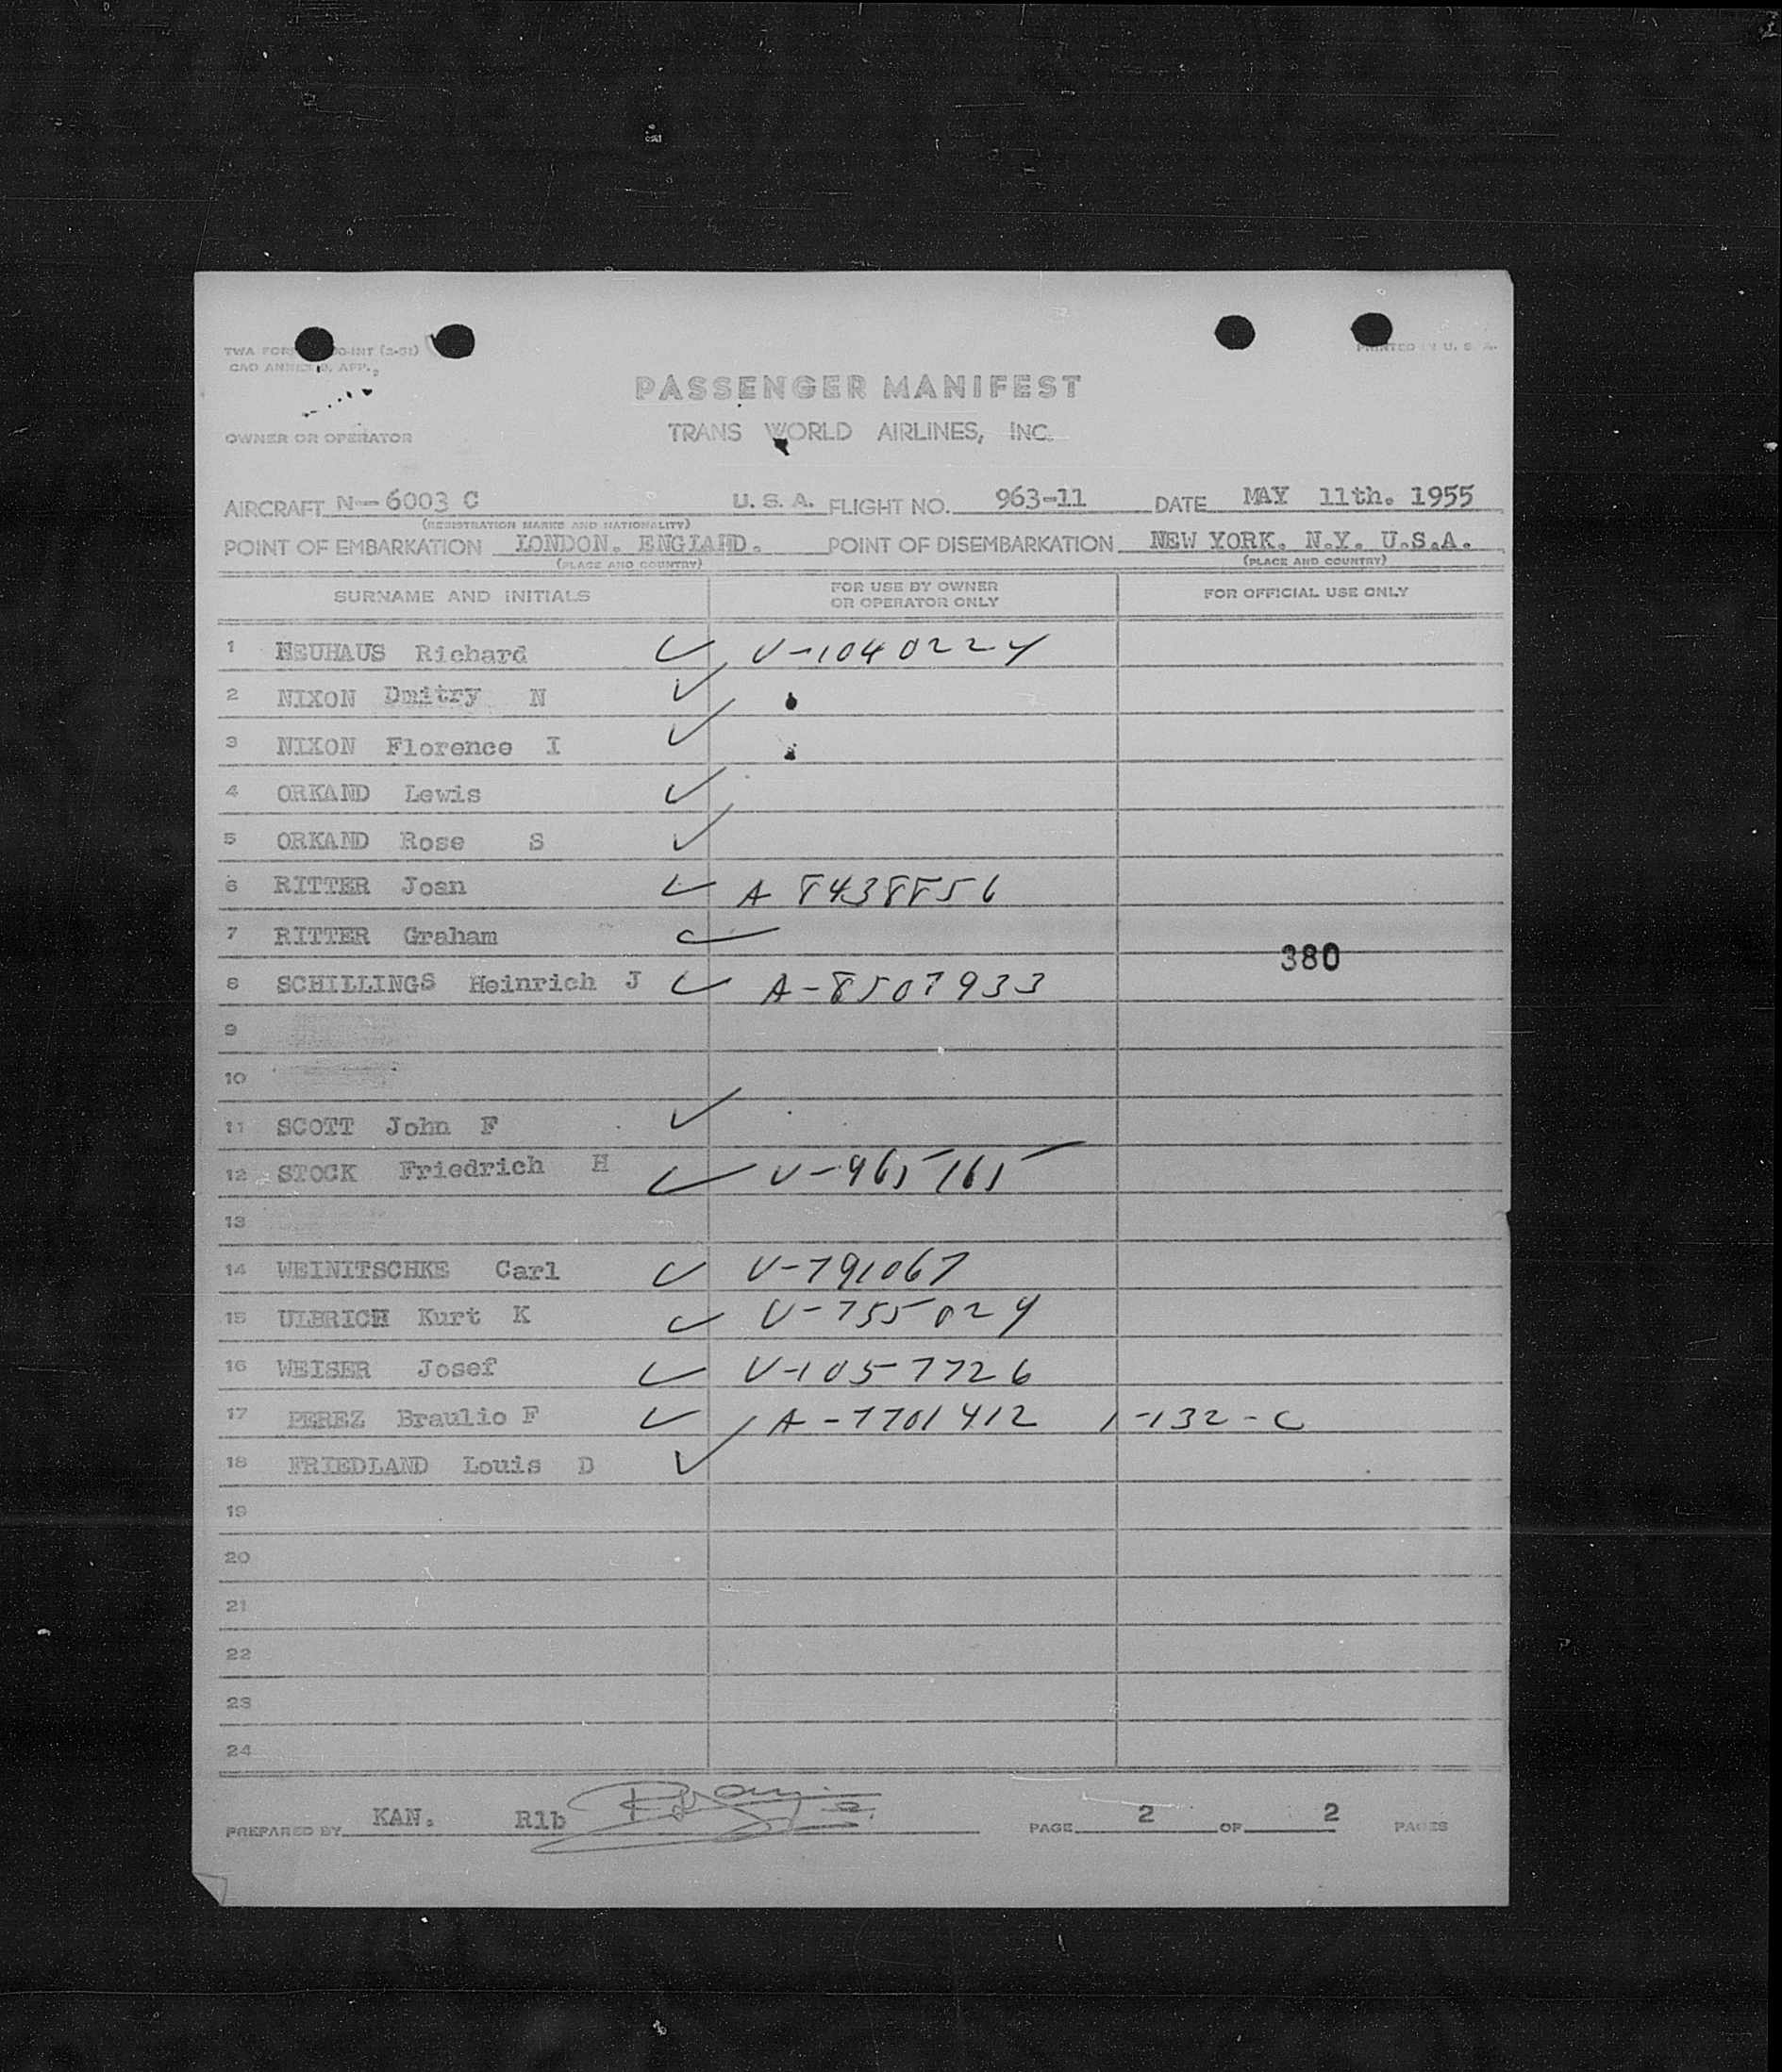 PRINTED IN U. S. A.
PASSENGER MANIFEST
OWNER OR OPERATOR TRANS WORLD AIRLINES, INC.
AIRCRAFT N-6003 C U. S. A. FLIGHT NO. 963-11 DATE MAY 11th. 1955
(REGISTRATION MARKS AND NATIONALITY)
POINT OF EMBARKATION LONDON. ENGLAND. POINT OF DISEMBARKATION NEW YORK. N.Y. U.S.A.
(PLACE AND COUNTRY) (PLACE AND COUNTRY)
SURNAME AND INITIALS FOR USE BY OWNER OR OPERATOR ONLY FOR OFFICIAL USE ONLY
1 NEUHAUS Richard V-1040224
2 NIXON Dmitry N
3 NIXON Florence I
4 ORKAND Lewis
5 ORKAND Rose S
6 RITTER Joan A 8438856
7 RITTER Graham
380
8 SCHILLINGS Heinrich J A-8507933
9
10
11 SCOTT John F
12 STOCK Friedrich H V-965165
13
14 WEINITSCHKE Carl V-791067
15 ULBRICH Kurt K V-755024
16 WEISER Josef V-1057726
17 PEREZ Braulio F A-7701412 1-132-C
18 FRIEDLAND Louis D
19
20
21
22
23
24
PREPARED BY KAN. Rlb PAGE 2 OF 2 PAGES